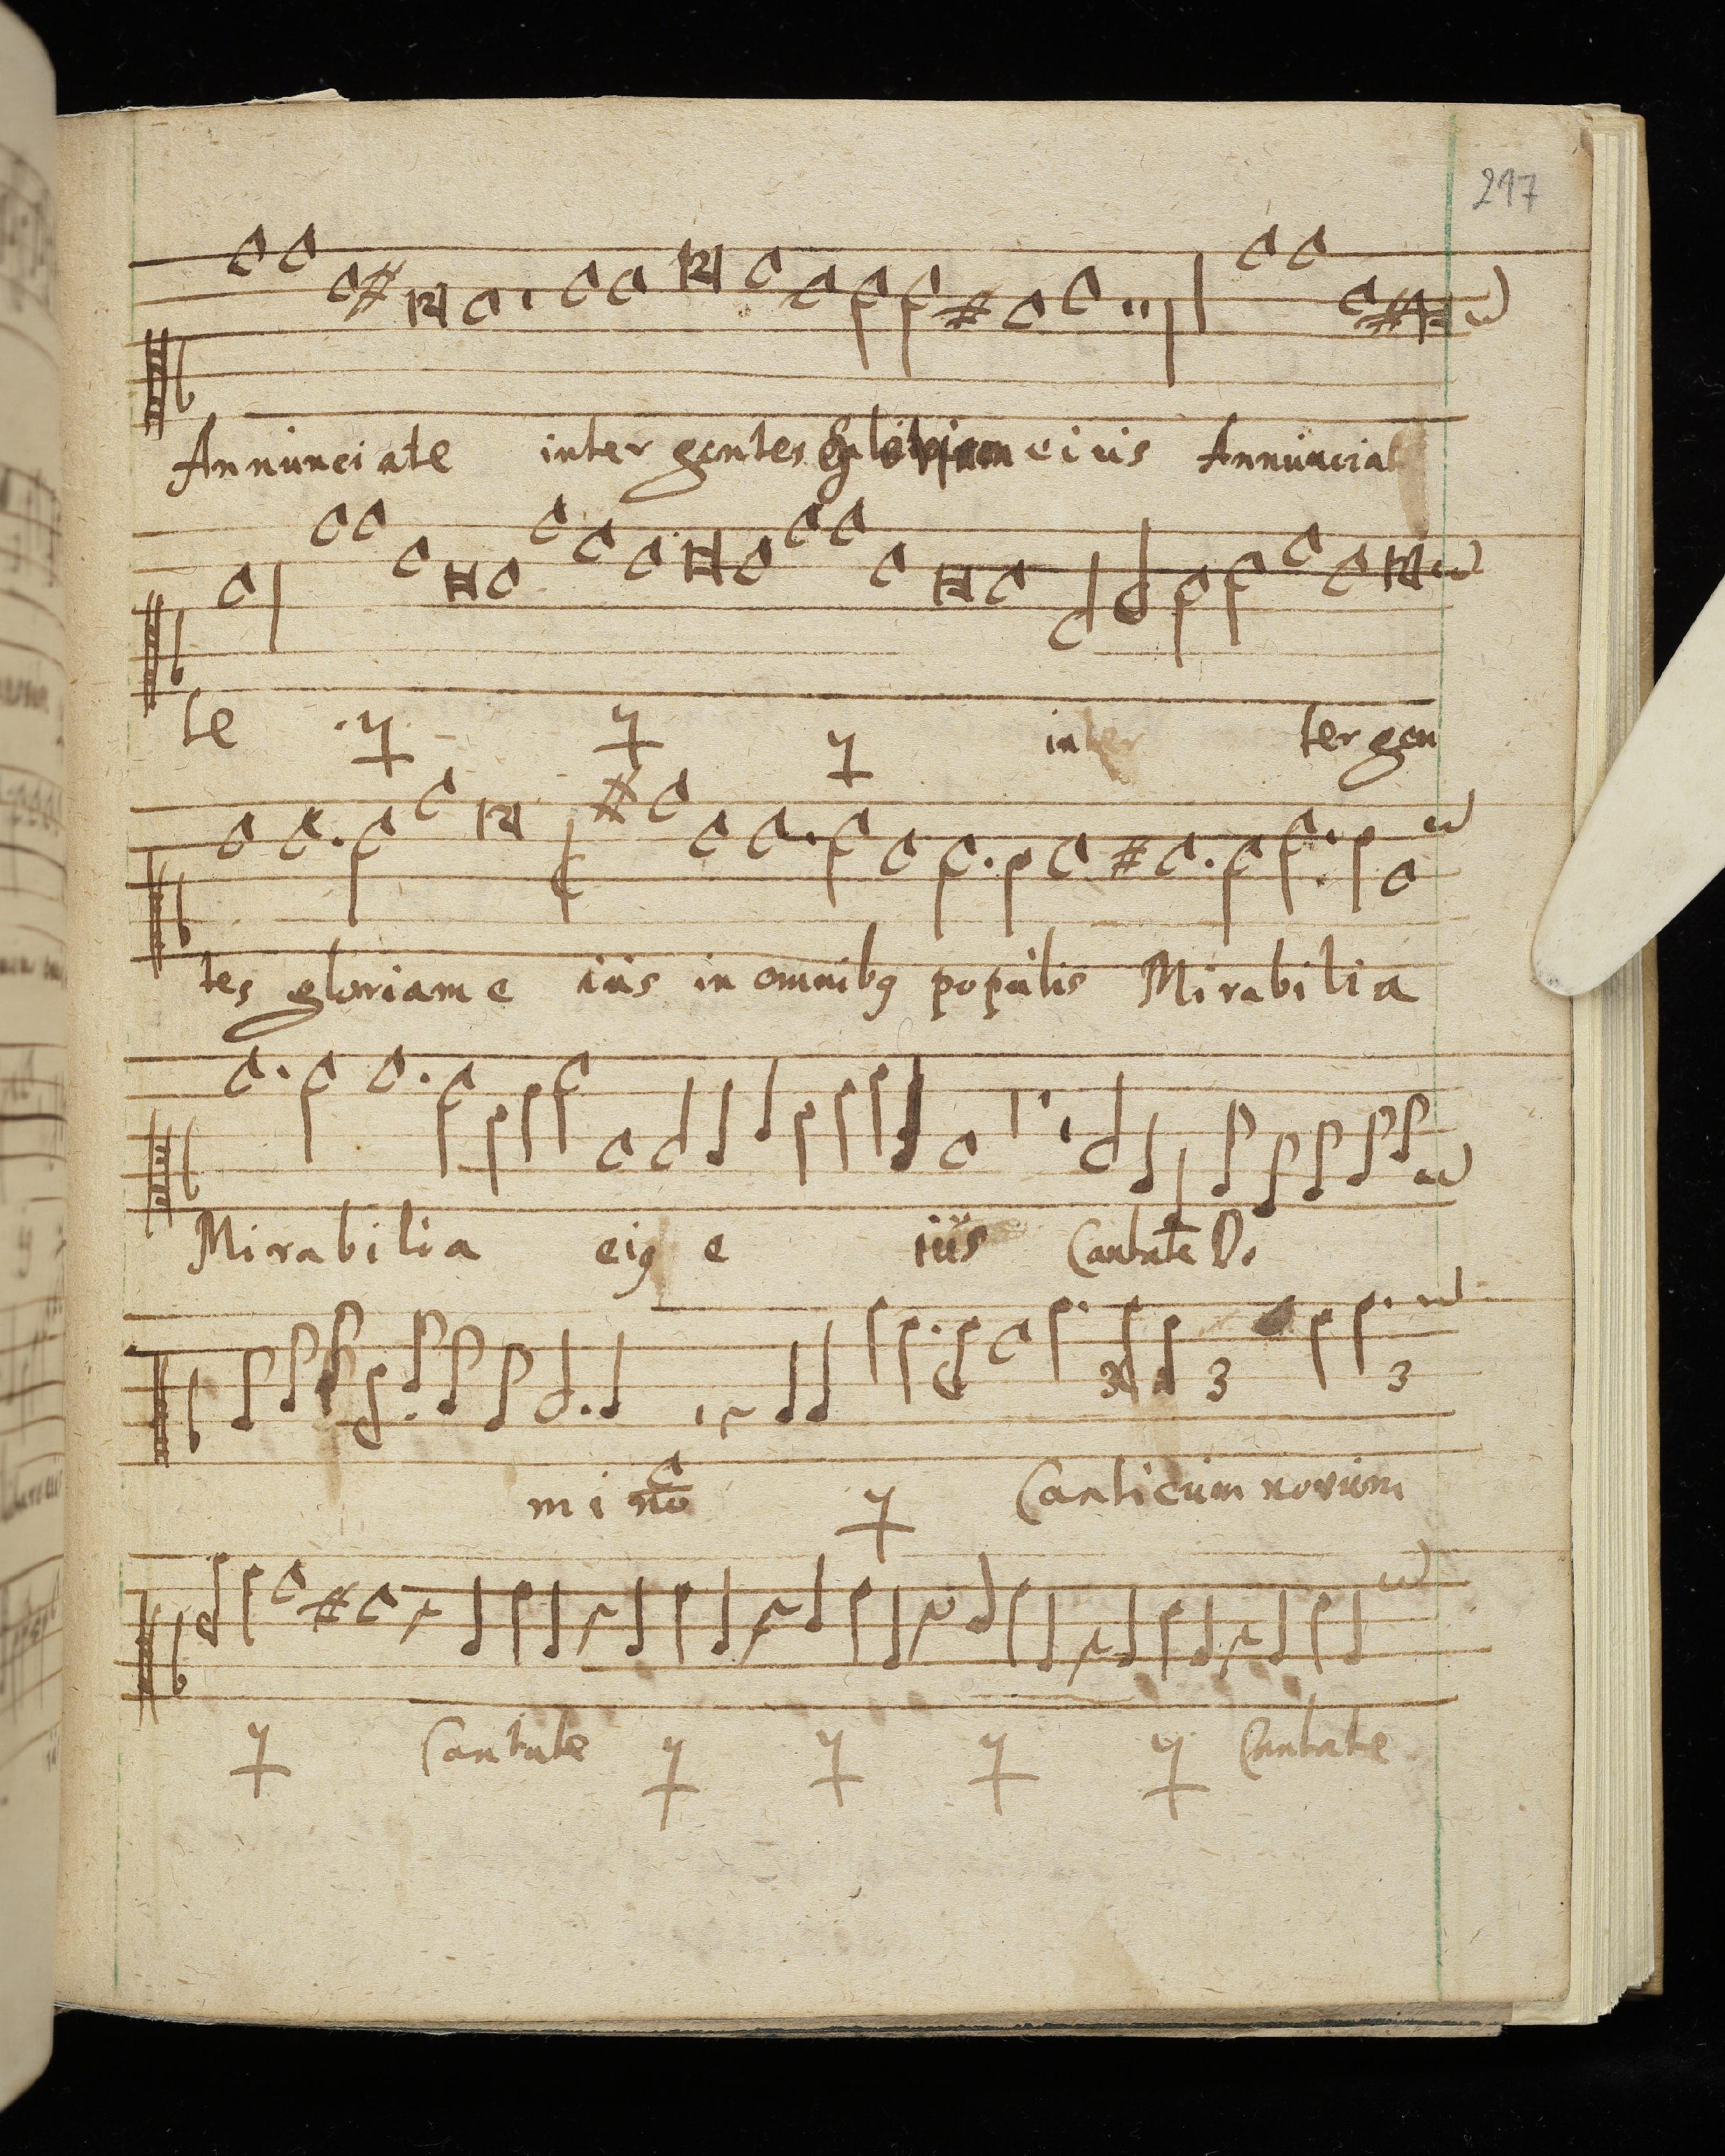 217
Annunciate inter gentes gloriam eius Annunciat
te inter ter gen
tes gloriam e ius in omnibꝰ populis Mirabilia
Mirabilia eiꝰ e ius Cantate D.
3 3 3
mi no Canticum novum
Cantate Cantate